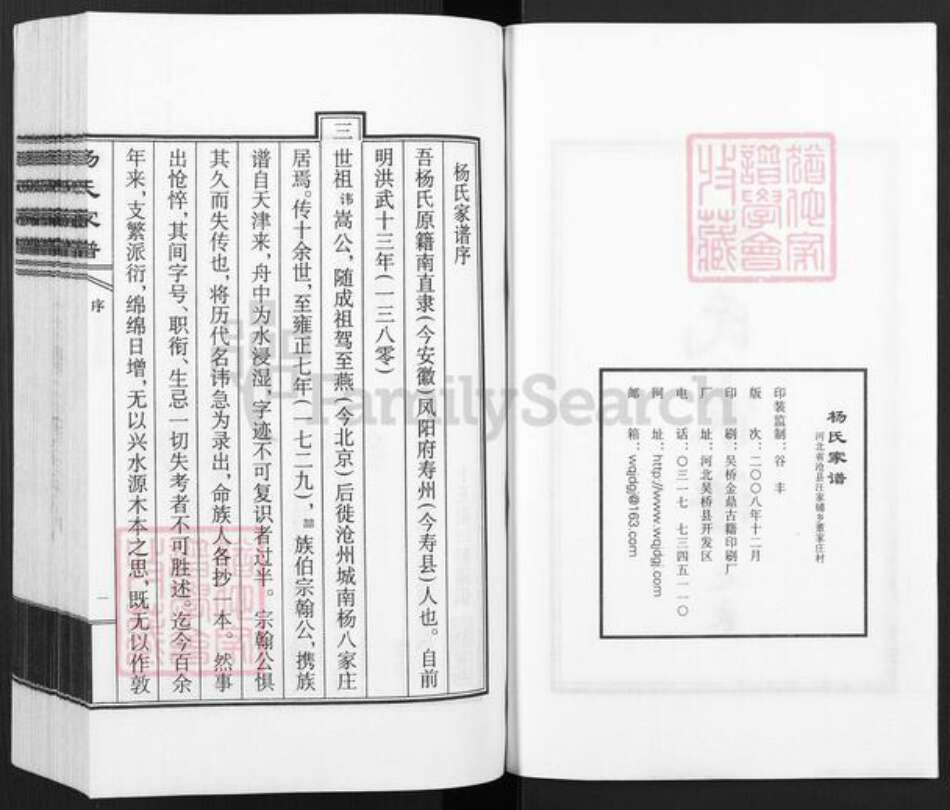 杨氏家谱
河北省沧县汪家铺乡董家庄村
印装监制：谷 丰
版 次：二〇〇八年十二月
印 刷：吴桥金鼎古籍印刷厂
厂 址：河北吴桥县开发区
电 话：〇三一七 七三四五一一〇
网 址：http://www.wqjdgj.com
邮 箱：wqjdgj@163.com
谱学会
收藏
杨氏家谱序
吾杨氏原籍南直隶(今安徽)凤阳府寿州(今寿县)人也。自前
明洪武十三年(一三八零)
三世祖讳嵩公，随成祖驾至燕(今北京)后徙沧州城南杨八家庄
居焉。传十余世，至雍正七年(一七二九)，族伯宗翰公，携族
谱自天津来，舟中为水浸湿，字迹不可复识者过半。宗翰公惧
其久而失传也，将历代名讳急为录出，命族人各抄一本。然事
出怆悴，其间字号、职衔、生忌一切失考者不可胜述。迄今百余
年来，支繁派衍，绵绵日增，无以兴水源木本之思，既无以作敦
杨氏家谱
序
一
FamilySearch